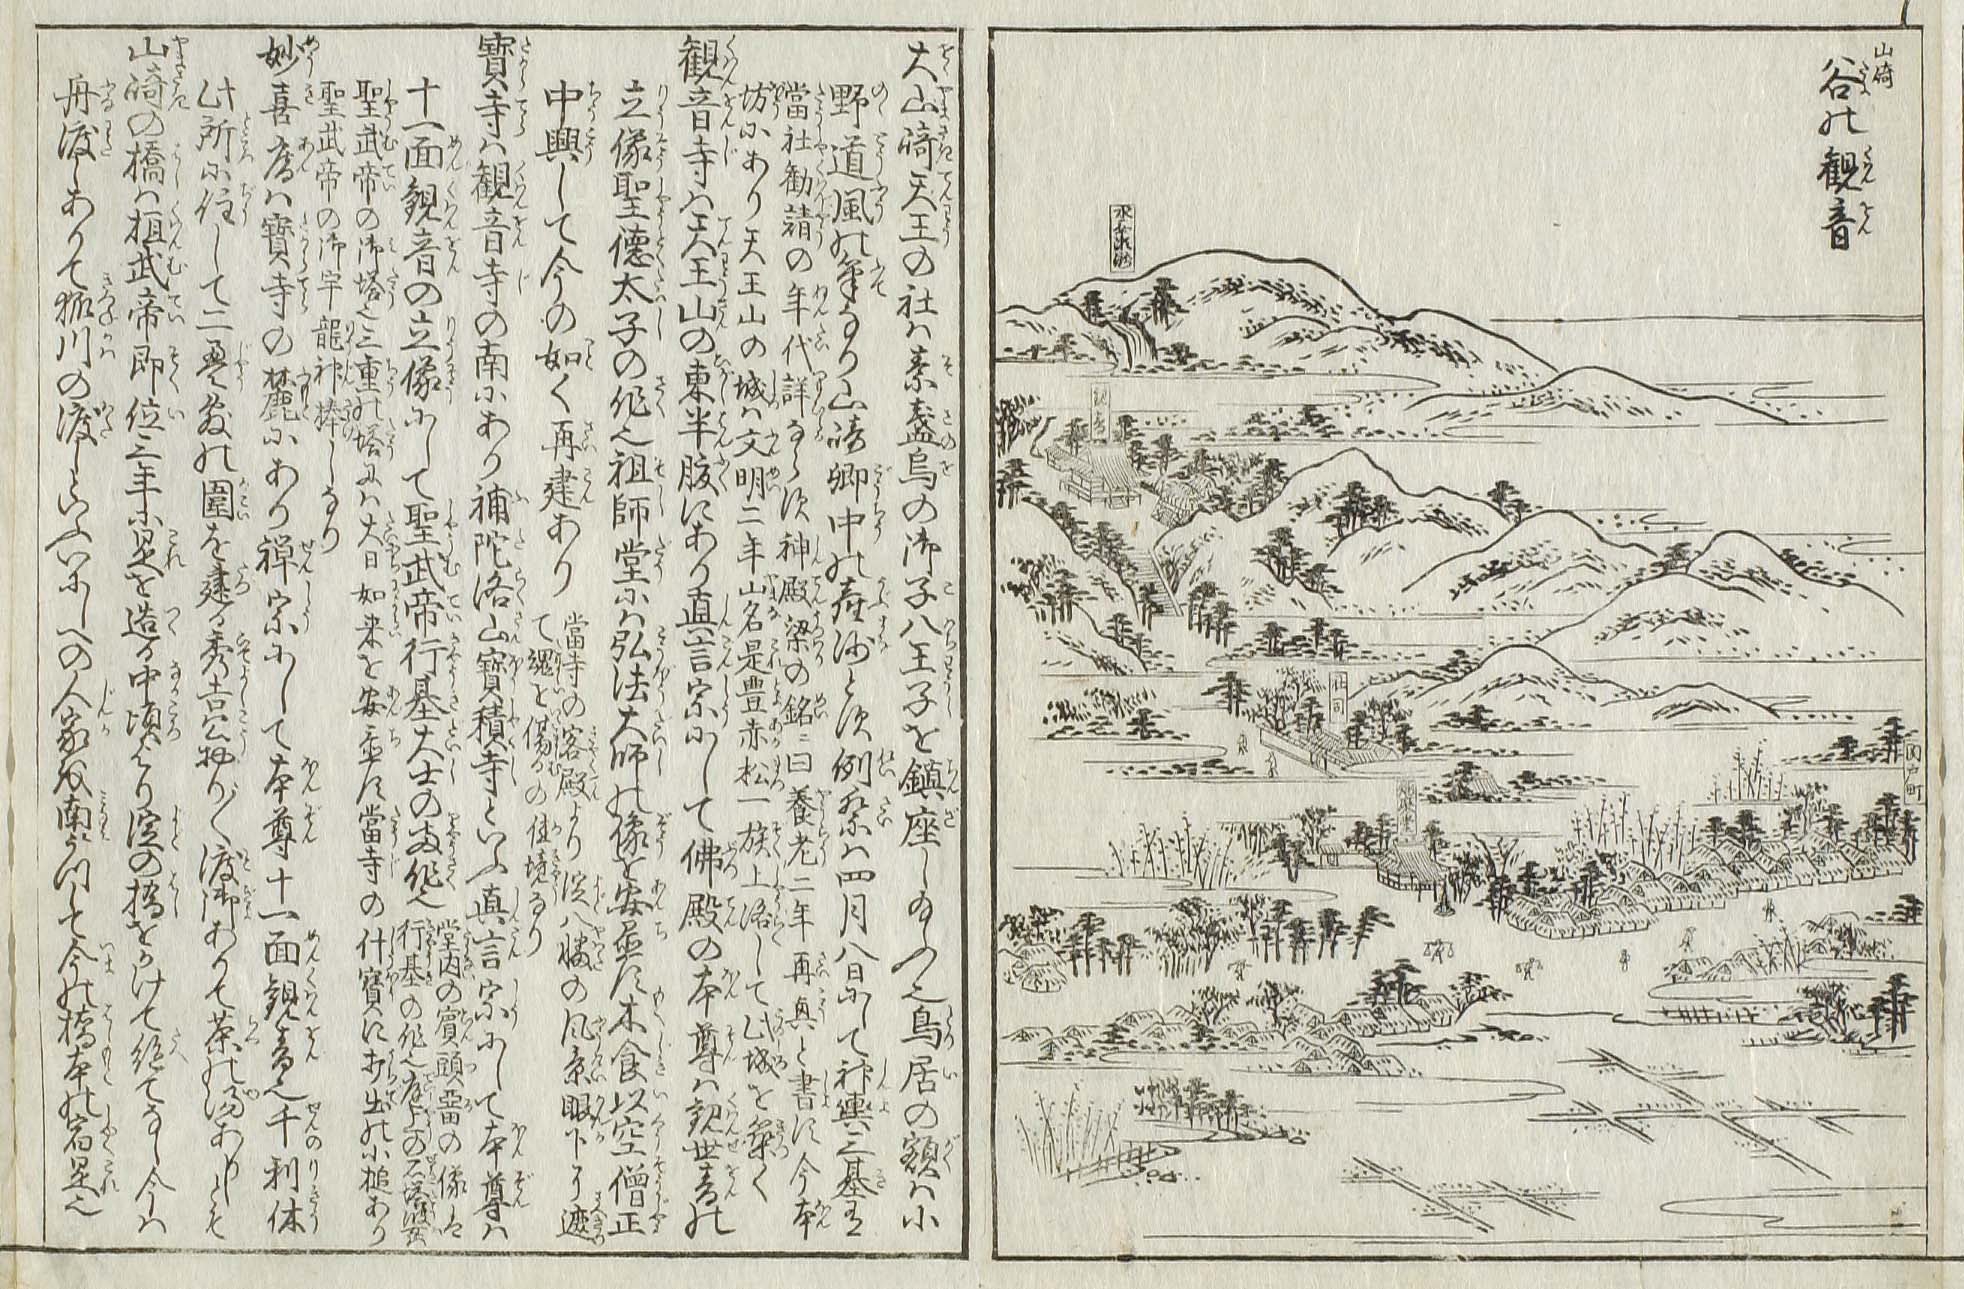 山崎
谷の観音
水無瀬滝
観音
社司
地蔵堂
関戸町
大山崎天王の社は素盞烏の御子八王子を鎮座しめ給ふ之鳥居の額は小
野道風の筆なり山崎郷中の産沙とす例祭は四月八日にして神輿三基有
當社勧請の年代詳ならす神殿梁の銘ニ曰養老二年再興と書す今本
坊にあり天王山の城は文明二年山名是豊赤松一族上洛して此城を築く
観音寺は天王山の東半腹にあり真言宗にして佛殿の本尊は観世音の
立像聖徳太子の作之祖師堂には弘法大師の像を安置す木食以空僧正
中興して今の如く再建あり
當寺の客殿より淀八幡の風景眼下に遮
て魂を傷るの佳境なり
寶寺は観音寺の南にあり補陀洛山寶積寺といふ真言宗にして本尊は
十一面観音の立像にして聖武帝行基大士の両作之
堂内の賓頭盧の像は
行基の作之庭上の石塔婆
聖武帝の御塔之三重の塔には大日如来を安置す當寺の什寶に打出の小槌あり
聖武帝の御宇龍神捧しなり
妙喜庵は寶寺の麓にあり禅宗にして本尊十一面観音之千利休
此所に住して二畳敷の圍を建る秀吉公物かく渡御ありて茶の湯ありしとそ
山崎の橋は桓武帝即位三年に是を造る中頃より淀の橋をかけて絶てなし今は
舟渡しありて狐川の渡しといふいにしへの人家は南につゝきて今の橋本の宿是之